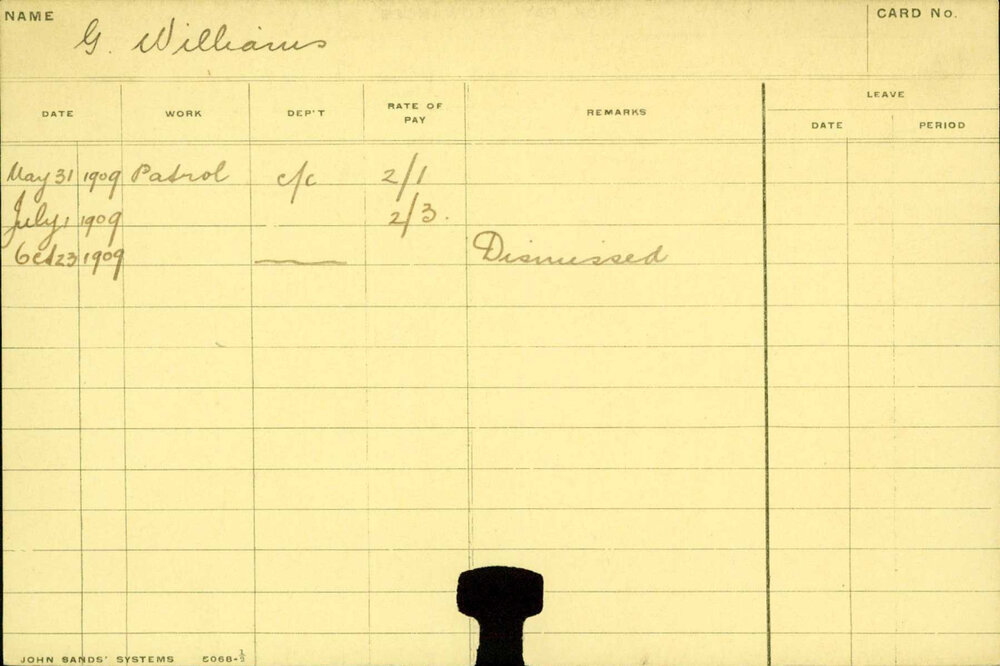 NAME G. Williams CARD No.
DATE WORK DEP'T RATE OF PAY REMARKS LEAVE
DATE PERIOD
May 31 1909 Patrol c/c 2/1
July 1 1909 2/3.
Oct 23 1909 —— Dismissed
JOHN SANDS' SYSTEMS 5068-½